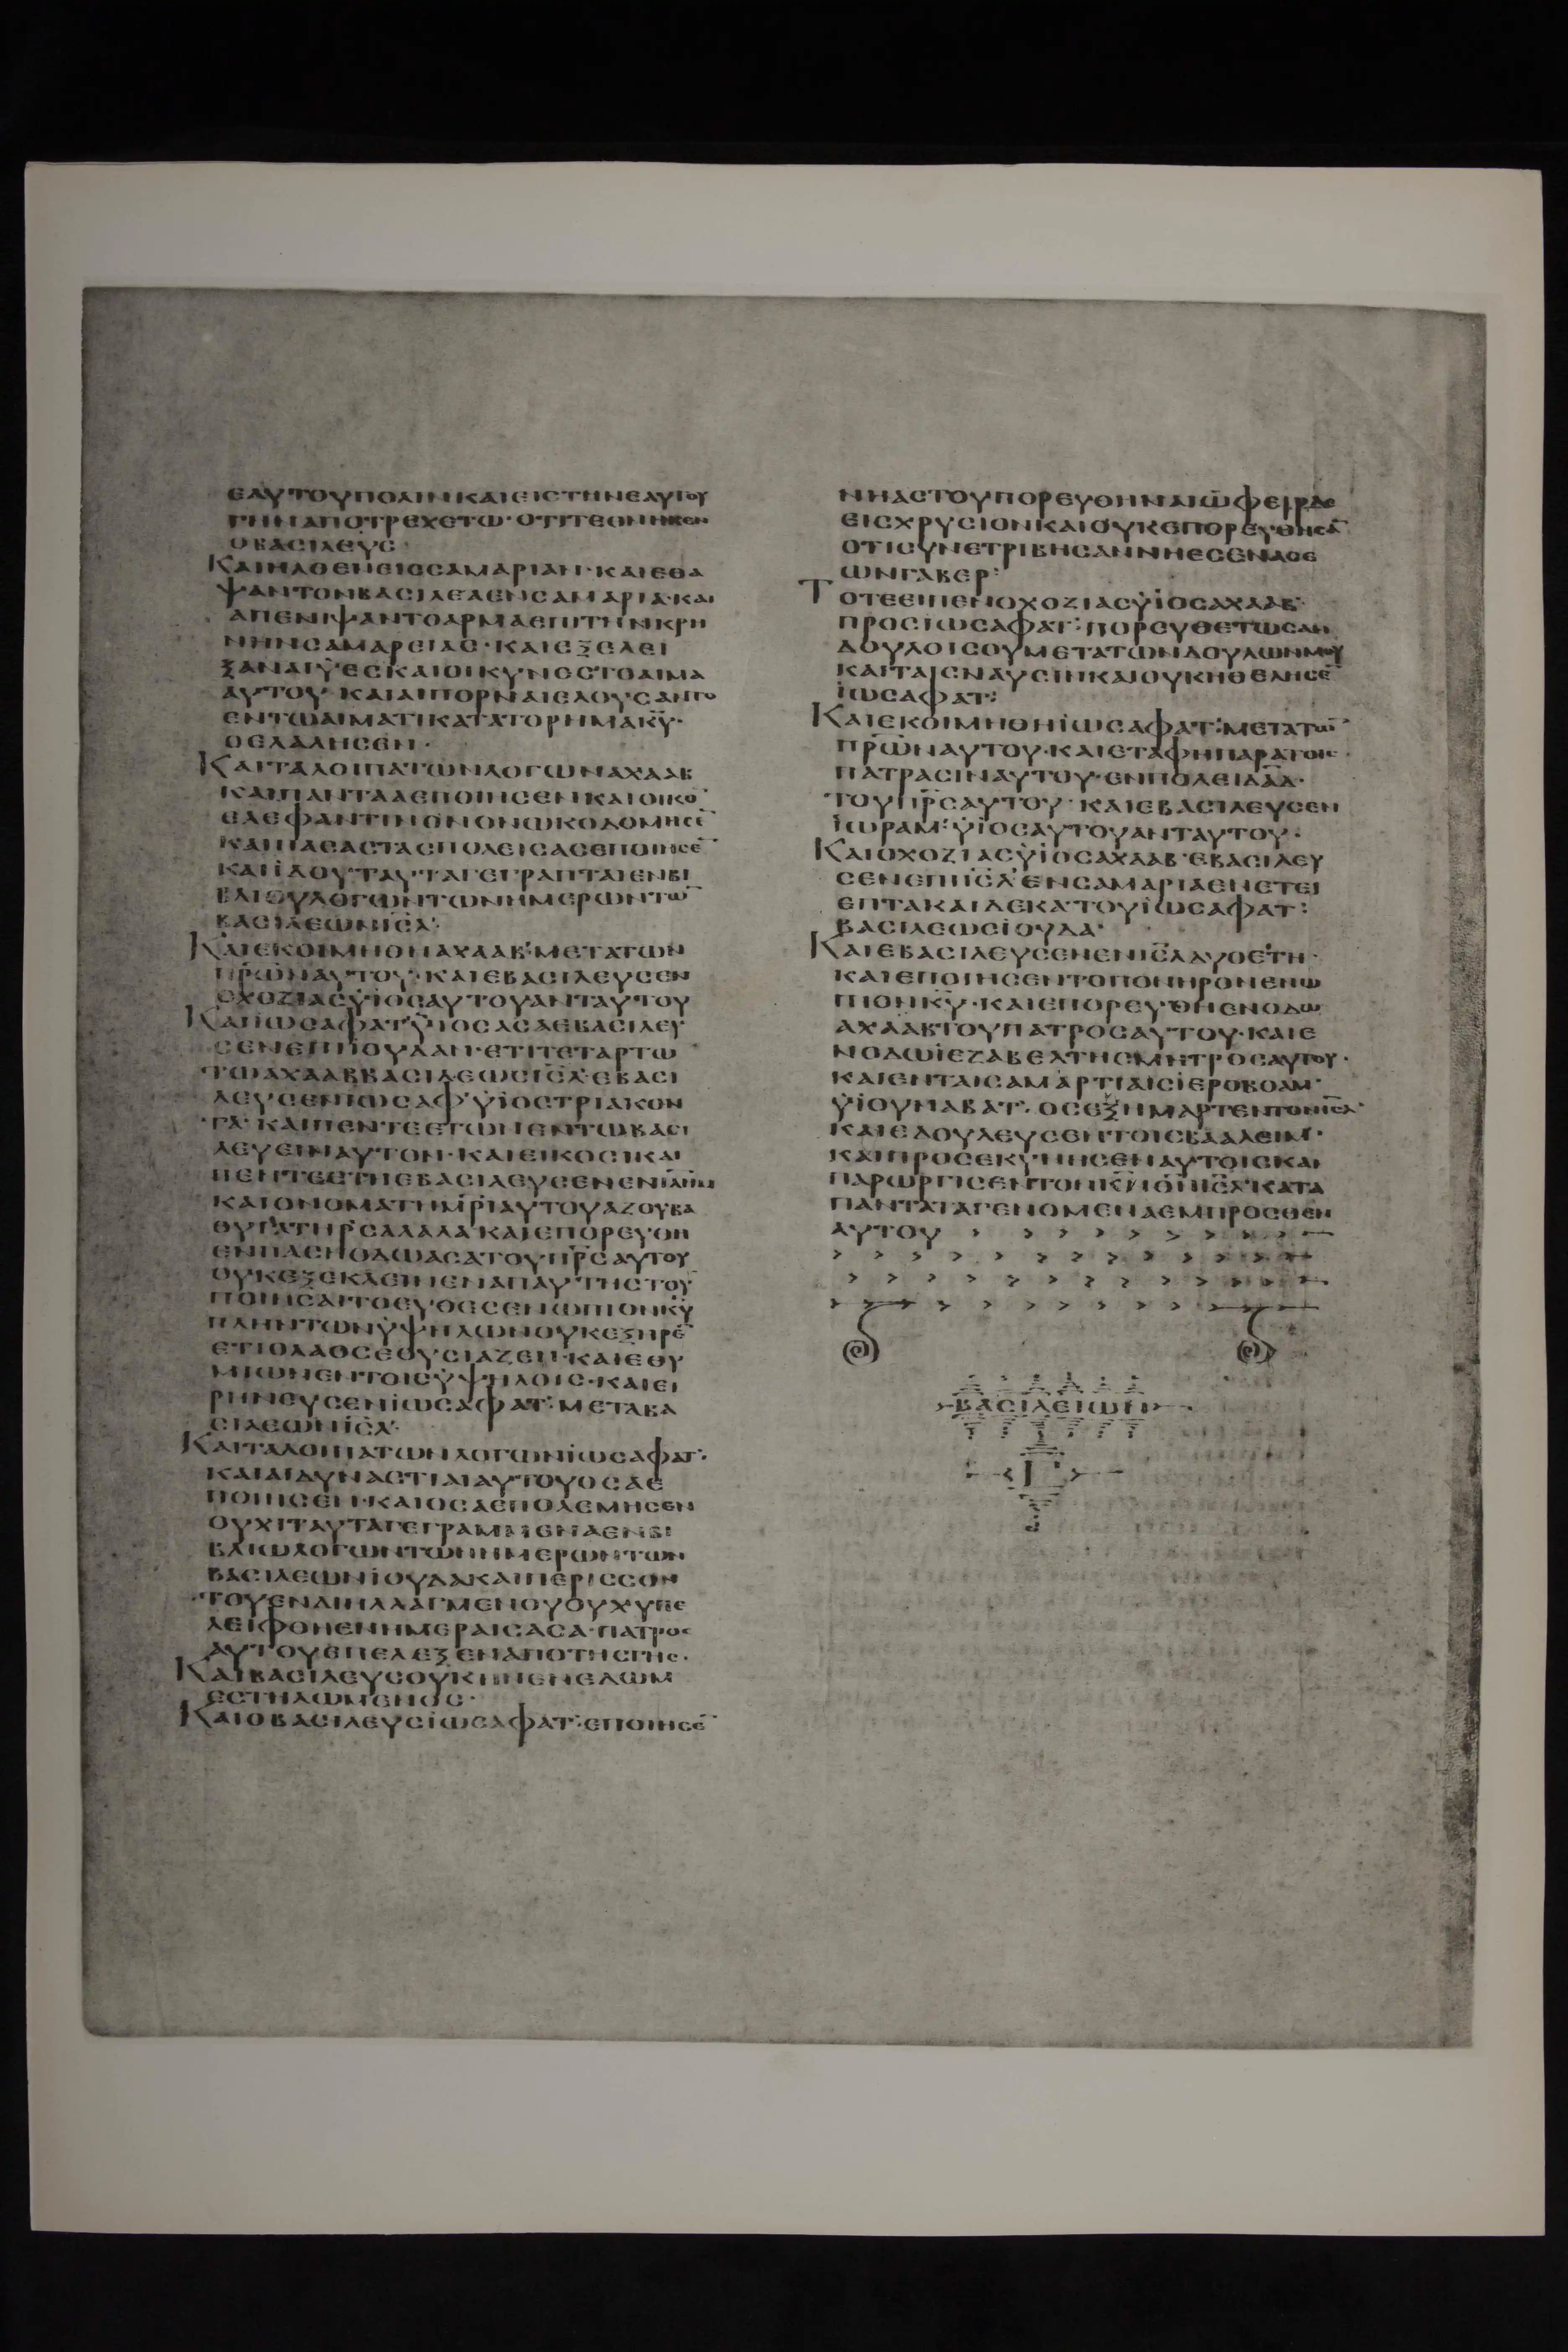 ΕΑΥΤΟΥΠΟΛΙΝΚΑΙΕΙΣΤΗΝΕΑΥΤΟΥ
ΓΗΝΑΠΟΤΡΕΧΕΤΩ·ΟΤΙΤΕΘΝΗΚΕΝ
ΟΒΑΣΙΛΕΥΣ
ΚΑΙΗΛΘΕΝΕΙΣΣΑΜΑΡΙΑΝ·ΚΑΙΕΘΑ
ΨΑΝΤΟΝΒΑΣΙΛΕΑΕΝΣΑΜΑΡΙΑ·ΚΑΙ
ΑΠΕΝΙΨΑΝΤΟΑΡΜΑΕΠΙΤΗΝΚΡΗ
ΝΗΝΣΑΜΑΡΕΙΑΣ·ΚΑΙΕΞΕΛΕΙ
ΞΑΝΑΙΫΕΣΚΑΙΟΙΚΥΝΕΣΤΟΑΙΜΑ
ΑΥΤΟΥ·ΚΑΙΑΙΠΟΡΝΑΙΕΛΟΥΣΑΝΤΟ
ΕΝΤΩΑΙΜΑΤΙΚΑΤΑΤΟΡΗΜΑΚ̅Υ̅·
ΟΕΛΑΛΗΣΕΝ·
ΚΑΙΤΑΛΟΙΠΑΤΩΝΛΟΓΩΝΑΧΑΑΒ
ΚΑΙΠΑΝΤΑΑΕΠΟΙΗΣΕΝΚΑΙΟΙΚΟ̅
ΕΛΕΦΑΝΤΙΝΟΝΟΝΩΚΟΔΟΜΗΣΕ̅
ΚΑΙΠΑΣΑΣΤΑΣΠΟΛΕΙΣΑΣΕΠΟΙΗΣΕ̅
ΚΑΙΪΔΟΥΤΑΥΤΑΓΕΓΡΑΠΤΑΙΕΝΒΙ
ΒΛΙΩΛΟΓΩΝΤΩΝΗΜΕΡΩΝΤΩ̅
ΒΑΣΙΛΕΩΝΙ̅Σ̅Λ̅·
ΚΑΙΕΚΟΙΜΗΘΗΑΧΑΑΒ·ΜΕΤΑΤΩΝ
Π̅Ρ̅Ω̅Ν̅ΑΥΤΟΥ·ΚΑΙΕΒΑΣΙΛΕΥΣΕΝ
ΟΧΟΖΙΑΣΫΙΟΣΑΥΤΟΥΑΝΤΑΥΤΟΥ
ΚΑΙΪΩΣΑΦΑΤΫΙΟΣΑΣΑΕΒΑΣΙΛΕΥ
ΣΕΝΕΠΙΪΟΥΔΑΝ·ΕΤΙΤΕΤΑΡΤΩ
ΤΩΑΧΑΑΒΒΑΣΙΛΕΩΣΙ̅Σ̅Λ̅·ΕΒΑΣΙ
ΛΕΥΣΕΝΪΩΣΑΦ·ΫΙΟΣΤΡΙΑΚΟΝ
ΤΑ·ΚΑΙΠΕΝΤΕΕΤΩΝΕΝΤΩΒΑΣΙ
ΛΕΥΕΙΝΑΥΤΟΝ·ΚΑΙΕΙΚΟΣΙΚΑΙ
ΠΕΝΤΕΕΤΗΕΒΑΣΙΛΕΥΣΕΝΕΝΙ̅Λ̅Η̅Μ̅
ΚΑΙΟΝΟΜΑΤΗΜ̅Ρ̅Ι̅ΑΥΤΟΥΑΖΟΥΒΑ
ΘΥΓΑΤΗΡΣΑΛΑΛΑ·ΚΑΙΕΠΟΡΕΥΘΗ
ΕΝΠΑΣΗΟΔΩΑΣΑΤΟΥΠ̅Ρ̅Σ̅ΑΥΤΟΥ
ΟΥΚΕΞΕΚΛΕΙΝΕΝΑΠΑΥΤΗΣΤΟΥ
ΠΟΙΗΣΑΙΤΟΕΥΘΕΣΕΝΩΠΙΟΝΚ̅Υ̅
ΠΛΗΝΤΩΝΫΨΗΛΩΝΟΥΚΕΞΗΡΕ̅
ΕΤΙΟΛΑΟΣΕΘΥΣΙΑΖΕΝ·ΚΑΙΕΘΥ
ΜΙΩΝΕΝΤΟΙΣΫΨΗΛΟΙΣ·ΚΑΙΕΙ
ΡΗΝΕΥΣΕΝΪΩΣΑΦΑΤ·ΜΕΤΑΒΑ
ΣΙΛΕΩΝΙ̅Σ̅Λ̅·
ΚΑΙΤΑΛΟΙΠΑΤΩΝΛΟΓΩΝΪΩΣΑΦΑΤ·
ΚΑΙΑΙΔΥΝΑΣΤΙΑΙΑΥΤΟΥΟΣΑΕ
ΠΟΙΗΣΕΝ·ΚΑΙΟΣΑΕΠΟΛΕΜΗΣΕΝ
ΟΥΧΙΤΑΥΤΑΓΕΓΡΑΜΜΕΝΑΕΝΒΙ
ΒΛΙΩΛΟΓΩΝΤΩΝΗΜΕΡΩΝΤΩΝ
ΒΑΣΙΛΕΩΝΪΟΥΔΑΚΑΙΠΕΡΙΣΣΟΝ
ΤΟΥΕΝΔΙΗΛΛΑΓΜΕΝΟΥΟΥΧΥΠΕ
ΛΕΙΦΘΗΕΝΗΜΕΡΑΙΣΑΣΑ·ΠΑΤΡΟΣ
ΑΥΤΟΥΕΠΕΛΕΞΕΝΑΠΟΤΗΣΓΗΣ·
ΚΑΙΒΑΣΙΛΕΥΣΟΥΚΗΝΕΝΕΔΩΜ
ΕΣΤΗΛΩΜΕΝΟΣ·
ΚΑΙΟΒΑΣΙΛΕΥΣΪΩΣΑΦΑΤ·ΕΠΟΙΗΣΕ̅
ΝΗΑΣΤΟΥΠΟΡΕΥΘΗΝΑΙΩΦΕΙΡΔΕ
ΕΙΣΧΡΥΣΙΟΝΚΑΙΟΥΚΕΠΟΡΕΥΘΗΣΑ̅
ΟΤΙΣΥΝΕΤΡΙΒΗΣΑΝΝΗΕΣΕΝΑΣΕ
ΩΝΓΑΒΕΡ·
ΤΟΤΕΕΙΠΕΝΟΧΟΖΙΑΣΫΙΟΣΑΧΑΑΒ·
ΠΡΟΣΪΩΣΑΦΑΤ·ΠΟΡΕΥΘΕΤΩΣΑΝ
ΔΟΥΛΟΙΣΟΥΜΕΤΑΤΩΝΔΟΥΛΩΝΜΟΥ
ΚΑΙΤΑΙΣΝΑΥΣΙΝΚΑΙΟΥΚΗΘΕΛΗΣΕ̅
ΪΩΣΑΦΑΤ·
ΚΑΙΕΚΟΙΜΗΘΗΪΩΣΑΦΑΤ·ΜΕΤΑΤΩ̅
Π̅Ρ̅Ω̅Ν̅ΑΥΤΟΥ·ΚΑΙΕΤΑΦΗΠΑΡΑΤΟΙΣ
ΠΑΤΡΑΣΙΝΑΥΤΟΥ·ΕΝΠΟΛΕΙΔ̅Α̅Δ̅·
ΤΟΥΠ̅Ρ̅Σ̅ΑΥΤΟΥ·ΚΑΙΕΒΑΣΙΛΕΥΣΕΝ
ΪΩΡΑΜ·ΫΙΟΣΑΥΤΟΥΑΝΤΑΥΤΟΥ·
ΚΑΙΟΧΟΖΙΑΣΫΙΟΣΑΧΑΑΒ·ΕΒΑΣΙΛΕΥ
ΣΕΝΕΠΙΙ̅Σ̅Λ̅ΕΝΣΑΜΑΡΙΑΕΝΕΤΕΙ
ΕΠΤΑΚΑΙΔΕΚΑΤΟΥΪΩΣΑΦΑΤ·
ΒΑΣΙΛΕΩΣΪΟΥΔΑ·
ΚΑΙΕΒΑΣΙΛΕΥΣΕΝΕΝΙ̅Σ̅Λ̅ΔΥΟΕΤΗ·
ΚΑΙΕΠΟΙΗΣΕΝΤΟΠΟΝΗΡΟΝΕΝΩ
ΠΙΟΝΚ̅Υ̅·ΚΑΙΕΠΟΡΕΥΘΗΕΝΟΔΩ
ΑΧΑΑΒΤΟΥΠΑΤΡΟΣΑΥΤΟΥ·ΚΑΙΕ
ΝΟΔΩΪΕΖΑΒΕΛΤΗΣΜΗΤΡΟΣΑΥΤΟΥ·
ΚΑΙΕΝΤΑΙΣΑΜΑΡΤΙΑΙΣΪΕΡΟΒΟΑΜ·
ΫΙΟΥΝΑΒΑΤ·ΟΣΕΞΗΜΑΡΤΕΝΤΟΝΙ̅Σ̅Λ̅
ΚΑΙΕΔΟΥΛΕΥΣΕΝΤΟΙΣΒΑΑΛΕΙΜ·
ΚΑΙΠΡΟΣΕΚΥΝΗΣΕΝΑΥΤΟΙΣΚΑΙ
ΠΑΡΩΡΓΙΣΕΝΤΟΝΚ̅Ν̅Θ̅Ν̅Ι̅Σ̅Λ̅ΚΑΤΑ
ΠΑΝΤΑΤΑΓΕΝΟΜΕΝΑΕΜΠΡΟΣΘΕΝ
ΑΥΤΟΥ
ΒΑΣΙΛΕΙΩΝ
Γ